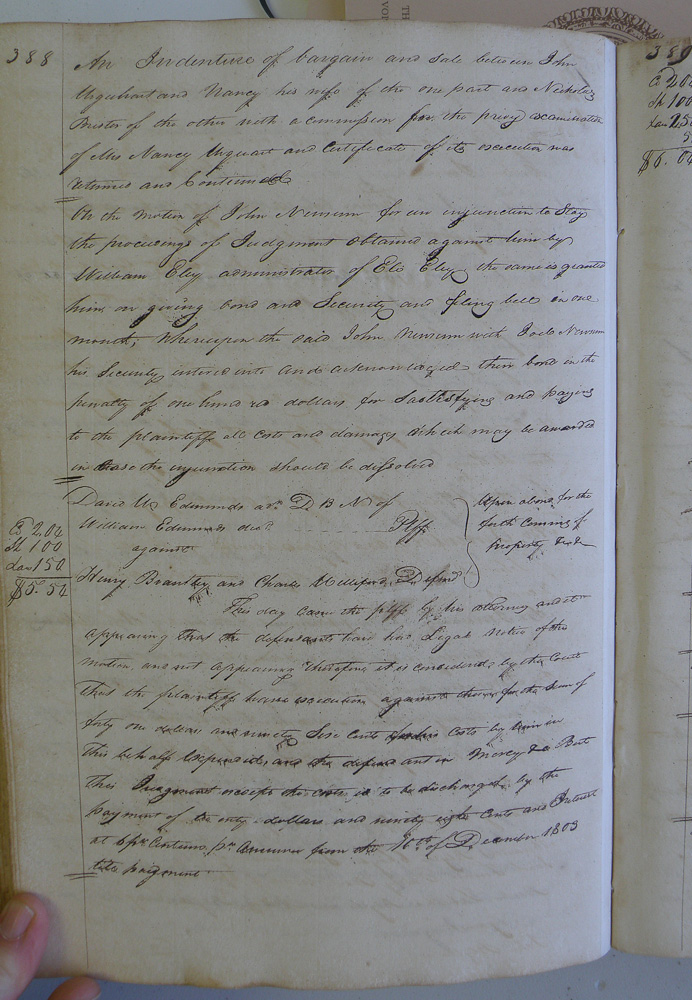 388
An Indenture of bargain and sale between John
Urquhart and Nancy his wife of the one part and Nicholas
of the other with a commission for the privy examination
of Mrs Nancy Urquart and Certificate of its execution was
returned and Continued
On the motion of John Newsum for an injunction to Stay
the proceedings of Judgment Obtained against him by
William Eley administrator of Eli Eley the same is granted
him on giving bond and Security and filing bill in one
month, Whereupon the said John Newsum with Joel Newsum
his Security entered into and acknowledged their bond in the
penalty of one hundred dollars for Sattisfying and paying
to the plaintiff all costs and damages which may be awarded
in Case the injunction should be dissolved
David Edmunds adr. D B N of
William Edmunds decd. Plff
against
Henry Brantley and Charles Defend
Upon a bond for the
forth Coming of
Property &c
Co 2.04
Sh 1 00
Law 1 50
$5.54
This day Came the plff by his attorney and it
appearing that the defendants have had Legal notice of this
motion and not appearing Therefore it is considered by the Court
that the plaintiff have execution against them for the Sum of
forty one dollars and ninety Six Cents his costs by him in
this behalf Expended and the defendant in Mercy &c But
this Judgment except the costs is to be discharged by the
payment of twenty dollars and ninety eight Cents and Interest
at 6 pr Centum pr Annum from the 16th of December 1803
till paiment
389
Co 2.04
Sh 1 00
Law 2.50
$5.04